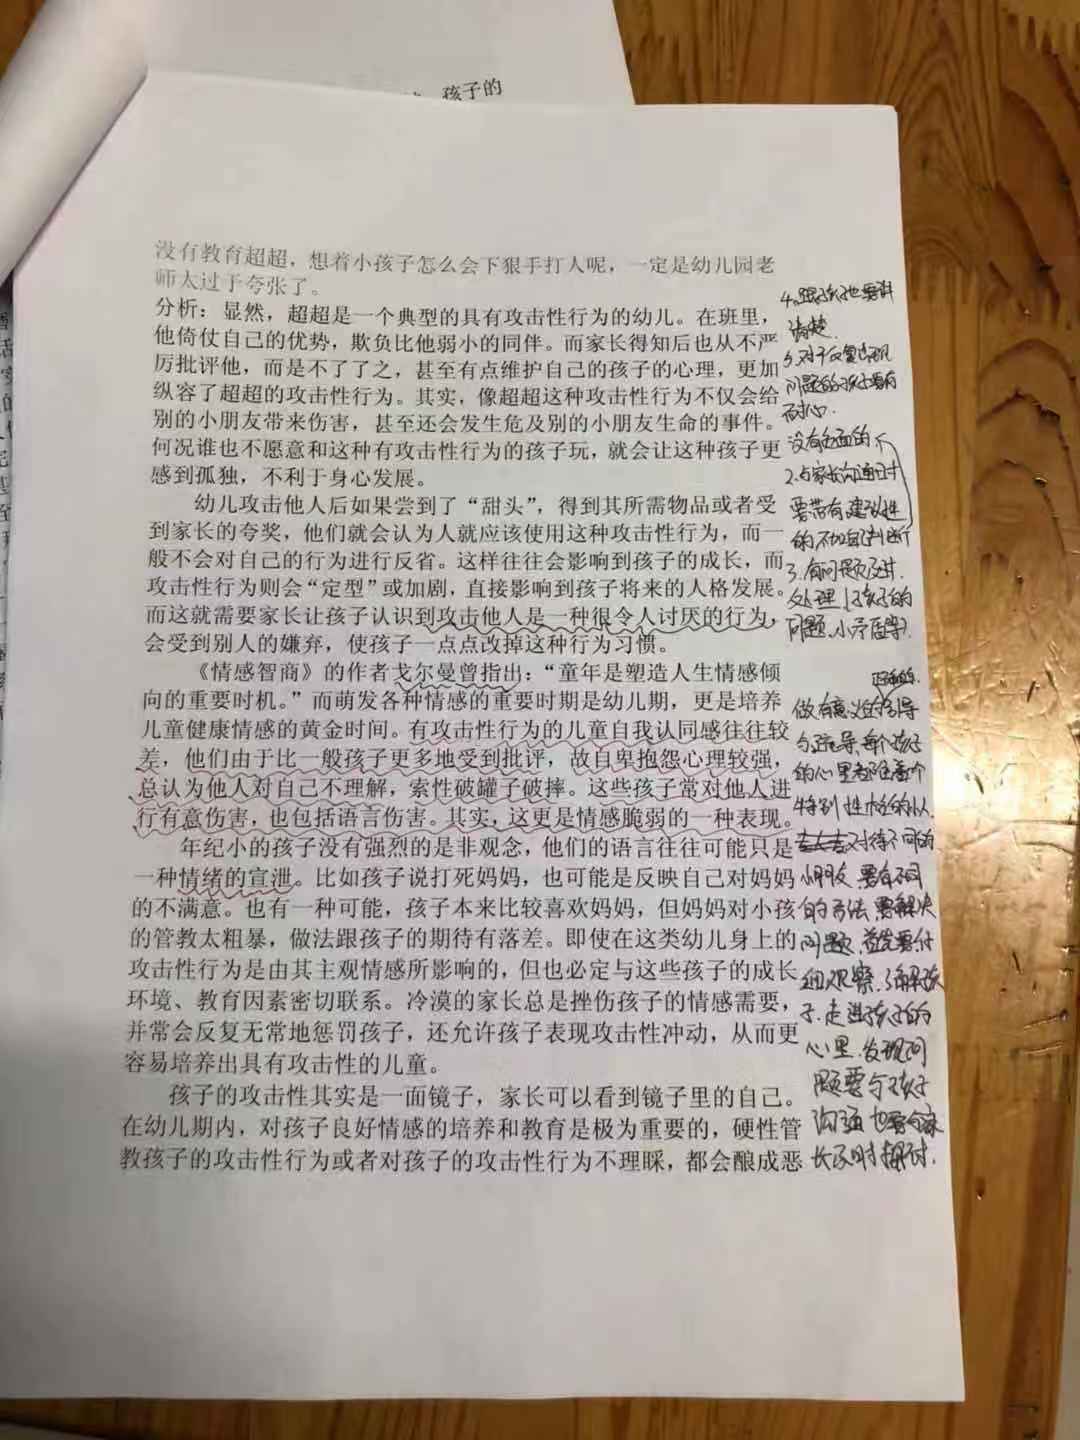 孩子的
没有教育超超，想着小孩子怎么会下狠手打人呢，一定是幼儿园老
师太过于夸张了。
分析：显然，超超是一个典型的具有攻击性行为的幼儿。在班里，
他倚仗自己的优势，欺负比他弱小的同伴。而家长得知后也从不严
厉批评他，而是不了了之，甚至有点维护自己的孩子的心理，更加
纵容了超超的攻击性行为。其实，像超超这种攻击性行为不仅会给
别的小朋友带来伤害，甚至还会发生危及别的小朋友生命的事件。
何况谁也不愿意和这种有攻击性行为的孩子玩，就会让这种孩子更
感到孤独，不利于身心发展。
幼儿攻击他人后如果尝到了“甜头”，得到其所需物品或者受
到家长的夸奖，他们就会认为人就应该使用这种攻击性行为，而一
般不会对自己的行为进行反省。这样往往会影响到孩子的成长，而
攻击性行为则会“定型”或加剧，直接影响到孩子将来的人格发展。
而这就需要家长让孩子认识到攻击他人是一种很令人讨厌的行为，
会受到别人的嫌弃，使孩子一点点改掉这种行为习惯。
《情感智商》的作者戈尔曼曾指出：“童年是塑造人生情感倾
向的重要时机。”而萌发各种情感的重要时期是幼儿期，更是培养
儿童健康情感的黄金时间。有攻击性行为的儿童自我认同感往往较
差，他们由于比一般孩子更多地受到批评，故自卑抱怨心理较强，
总认为他人对自己不理解，索性破罐子破摔。这些孩子常对他人进
行有意伤害，也包括语言伤害。其实，这更是情感脆弱的一种表现。
年纪小的孩子没有强烈的是非观念，他们的语言往往可能只是
一种情绪的宣泄。比如孩子说打死妈妈，也可能是反映自己对妈妈
的不满意。也有一种可能，孩子本来比较喜欢妈妈，但妈妈对小孩
的管教太粗暴，做法跟孩子的期待有落差。即使在这类幼儿身上的
攻击性行为是由其主观情感所影响的，但也必定与这些孩子的成长
环境、教育因素密切联系。冷漠的家长总是挫伤孩子的情感需要，
并常会反复无常地惩罚孩子，还允许孩子表现攻击性冲动，从而更
容易培养出具有攻击性的儿童。
孩子的攻击性其实是一面镜子，家长可以看到镜子里的自己。
在幼儿期内，对孩子良好情感的培养和教育是极为重要的，硬性管
教孩子的攻击性行为或者对孩子的攻击性行为不理睬，都会酿成恶
4.跟孩子也要讲
清楚.
5.对于反复出现
问题的孩子要有
耐心.
没有的
2.与家长沟通时
要带有建议性
的不加自己判断
3.有问题及时
处理孩子的
问题.小矛盾等
正确的
做有意义的引导
与疏导.每个孩子
的心里都住着个
特别性格的小人
对待不同的
小朋友 要有不同
的方法 要解决
问题 首先要仔
细观察.了解孩
子.走进孩子的
心里.发现问
题要与孩子
沟通 也要与家
长及时探讨.